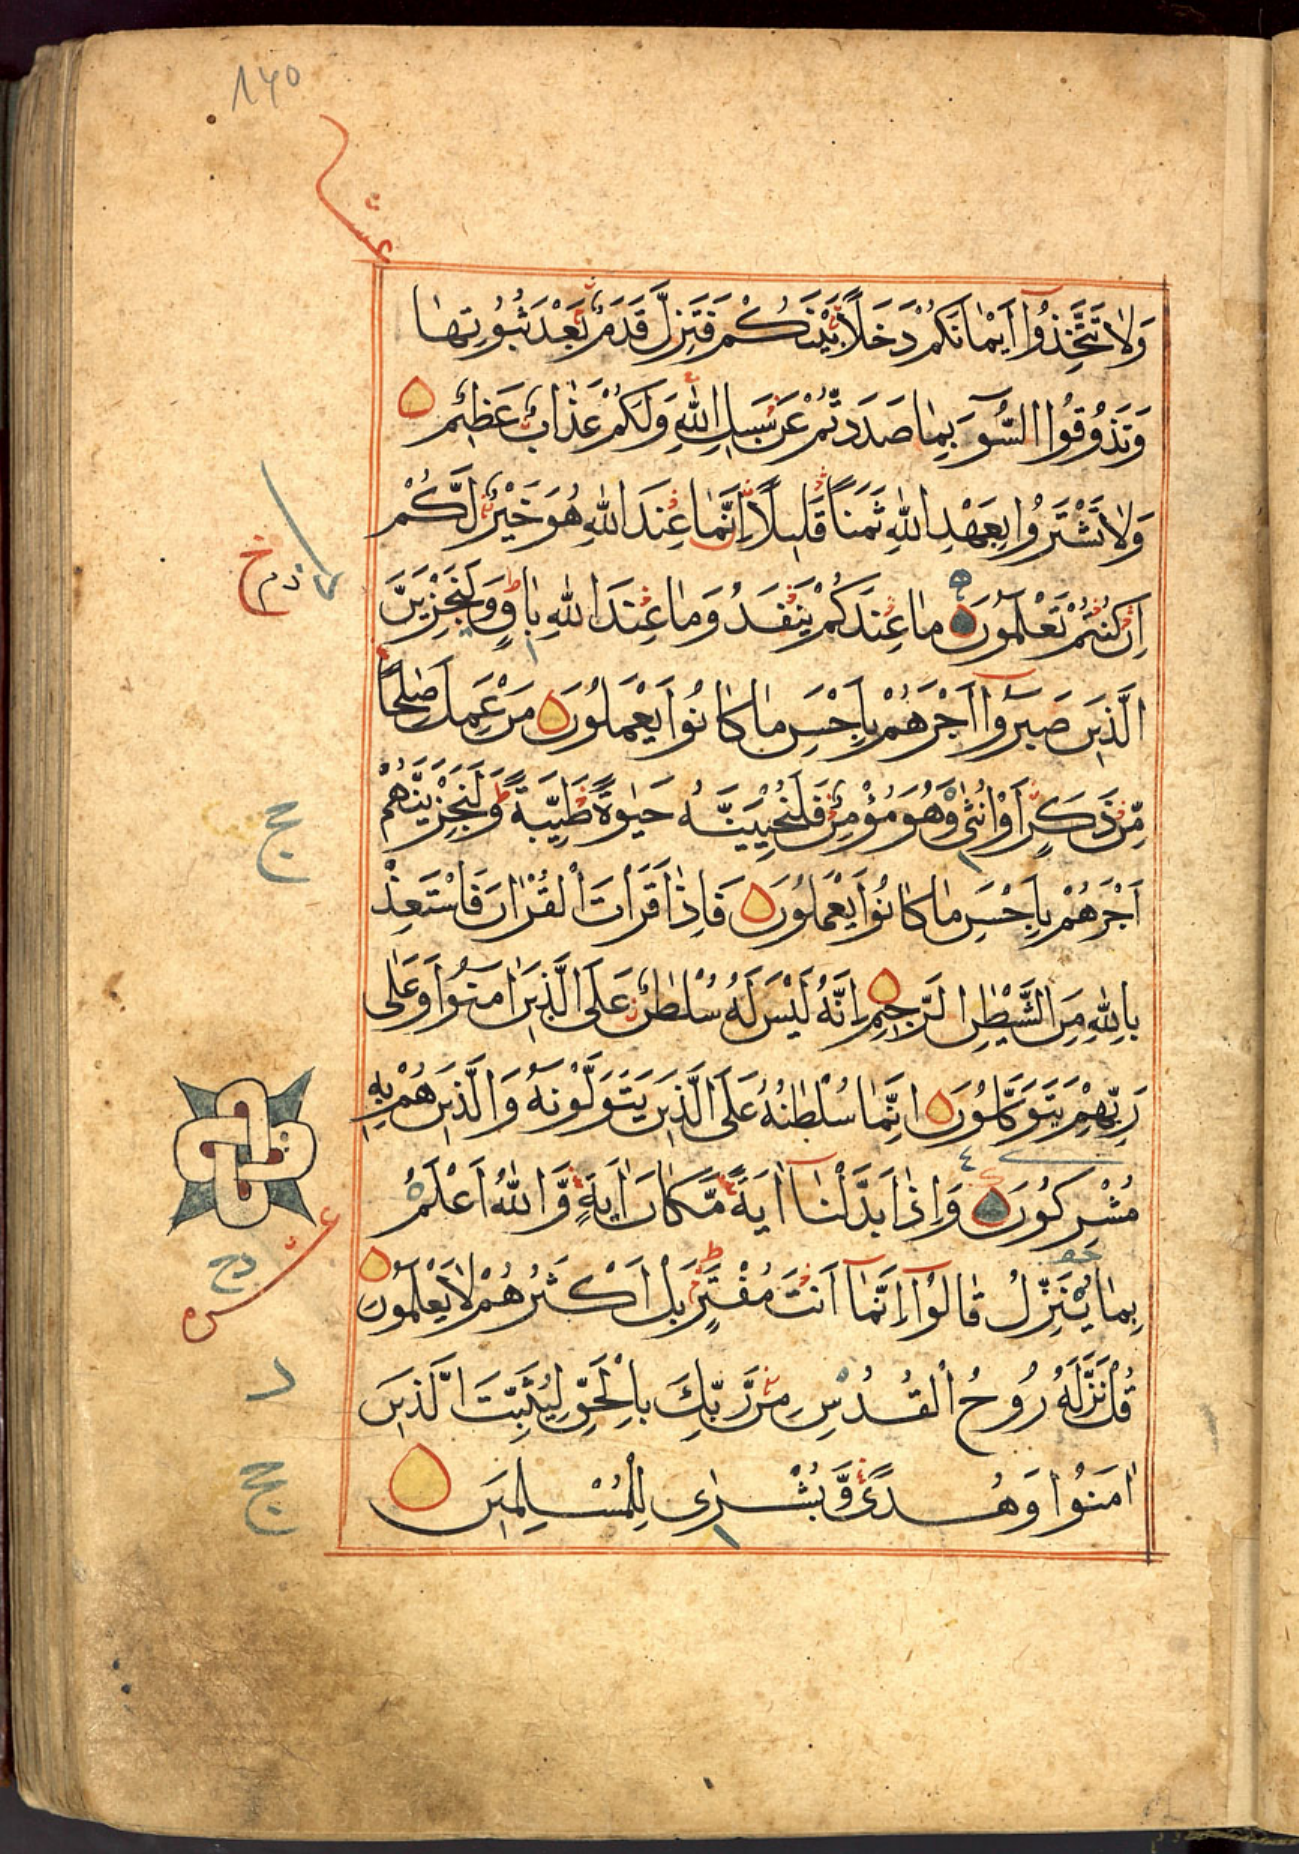 ١٤٥
عشر
وَلَا تَتَّخِذُوا أَيْمَانَكُمْ دَخَلًا بَيْنَكُمْ فَتَزِلَّ قَدَمٌ بَعْدَ ثُبُوتِهَا
وَتَذُوقُوا السُّوءَ بِمَا صَدَدتُّمْ عَن سَبِيلِ اللَّهِ وَلَكُمْ عَذَابٌ عَظِيمٌ
وَلَا تَشْتَرُوا بِعَهْدِ اللَّهِ ثَمَنًا قَلِيلًا إِنَّمَا عِندَ اللَّهِ هُوَ خَيْرٌ لَّكُمْ
إِن كُنتُمْ تَعْلَمُونَ مَا عِندَكُمْ يَنفَدُ وَمَا عِندَ اللَّهِ بَاقٍ وَلَنَجْزِيَنَّ
الَّذِينَ صَبَرُوا أَجْرَهُمْ بِأَحْسَنِ مَا كَانُوا يَعْمَلُونَ مَنْ عَمِلَ صٰلِحًا
مِّن ذَكَرٍ أَوْ أُنثَىٰ وَهُوَ مُؤْمِنٌ فَلَنُحْيِيَنَّهُ حَيٰوةً طَيِّبَةً وَلَنَجْزِيَنَّهُمْ
أَجْرَهُمْ بِأَحْسَنِ مَا كَانُوا يَعْمَلُونَ فَإِذَا قَرَأْتَ الْقُرْاٰنَ فَاسْتَعِذْ
بِاللَّهِ مِنَ الشَّيْطٰنِ الرَّجِيمِ إِنَّهُ لَيْسَ لَهُ سُلْطٰنٌ عَلَى الَّذِينَ اٰمَنُوا وَعَلَىٰ
رَبِّهِمْ يَتَوَكَّلُونَ إِنَّمَا سُلْطٰنُهُ عَلَى الَّذِينَ يَتَوَلَّوْنَهُ وَالَّذِينَ هُمْ بِهِ
مُشْرِكُونَ وَإِذَا بَدَّلْنَا اٰيَةً مَّكَانَ اٰيَةٍ وَّاللَّهُ أَعْلَمُ
بِمَا يُنَزِّلُ قَالُوا إِنَّمَا أَنتَ مُفْتَرٍ بَلْ أَكْثَرُهُمْ لَا يَعْلَمُونَ
قُلْ نَزَّلَهُ رُوحُ الْقُدُسِ مِن رَّبِّكَ بِالْحَقِّ لِيُثَبِّتَ الَّذِينَ
اٰمَنُوا وَهُدًى وَّبُشْرَىٰ لِلْمُسْلِمِينَ